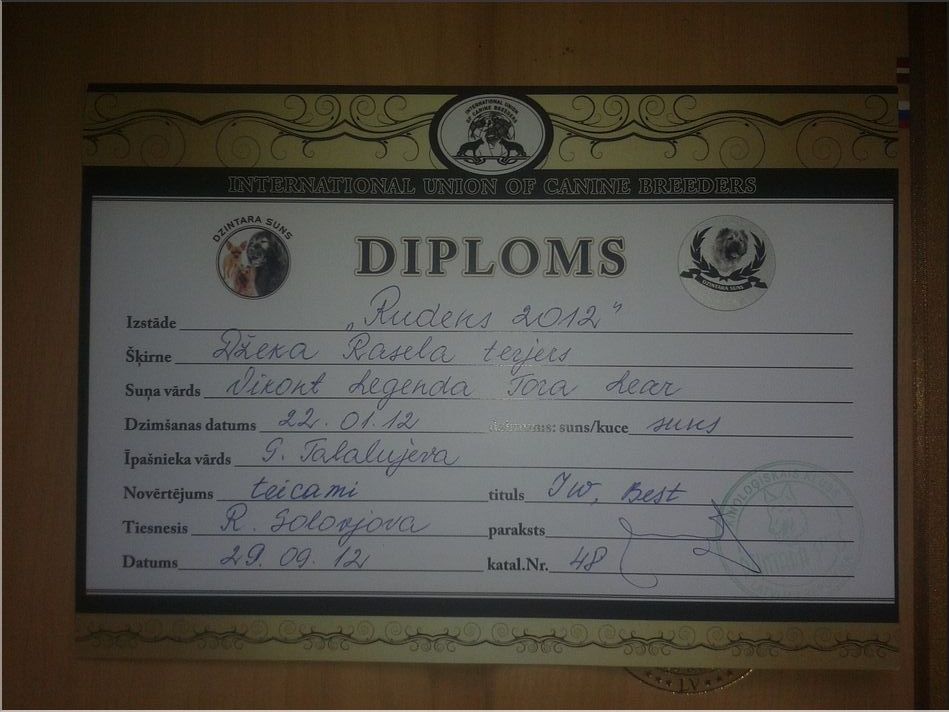 INTERNATIONAL UNION OF CANINE BREEDERS
INTERNATIONAL UNION OF CANINE BREEDERS
DZINTARA SUNS
DIPLOMS
DZINTARA SUNS
Izstāde „Rudens 2012"
Šķirne Džeka Rasela terjers
Suņa vārds Vikont Legenda Tora Lear
Dzimšanas datums 22.01.12 dzimums: suns/kuce suns
Īpašnieka vārds G. Talalujeva
Novērtējums teicami tituls JW, Best
Tiesnesis R. Solovjova paraksts
Datums 29.09.12 katal.Nr. 48
KINOLOĢISKAIS KLUBS
LV